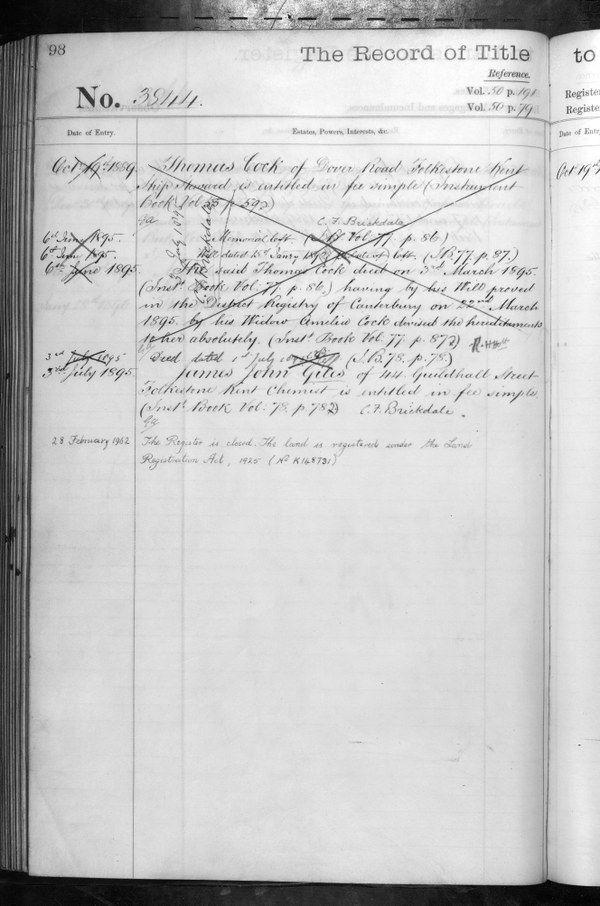 98
The Record of Title
to
Reference.
No. 3844.
Vol. 50 p. 191
Vol. 50 p. 79
Register
Register
Date of Entry.
Estates, Powers, Interests, &c.
Date of Entry
Oct 19th 1889
Thomas Cock of Dover Road Folkestone Kent
Oct 19th
Ship Steward is entitled in fee simple (Instrument
Book Vol 55 p 592)
C. F. Brickdale
July 1895
C. F. Brickdale
6th June 1895.
Memorial Cott. (I.B. Vol. 77. p. 86)
6th June 1895.
Will dated 15th Janry (I.B. 77. p. 87.)
6th June 1895.
The said Thomas Cock died on 3rd March 1895.
(Inst. Book Vol. 77. p. 86) having by his Will proved
in the District Registry of Canterbury on 22nd March
1895. by his Widow Amelia Cock devised the hereditaments
to her absolutely. (Inst. Book Vol. 77. p. 872)
3rd July 1895
Deed dated 1st July (I.B. 78. p. 78.)
3rd July 1895
James John Giles of 44 Guildhall Street
Folkestone Kent Chemist is entitled in fee simple
(Inst. Book Vol. 78. p. 782) C. F. Brickdale.
28 February 1952
The Register is closed. The land is registered under the Land
Registration Act, 1925 (No K168731)